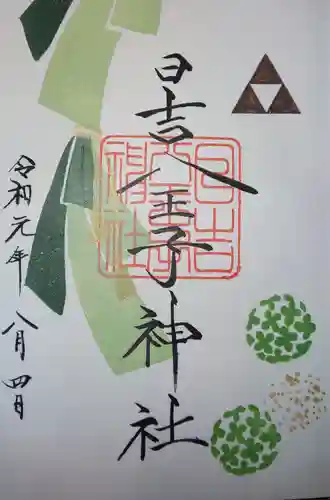 日吉八王子神社
日吉
八王子
神社
令和元年八月四日